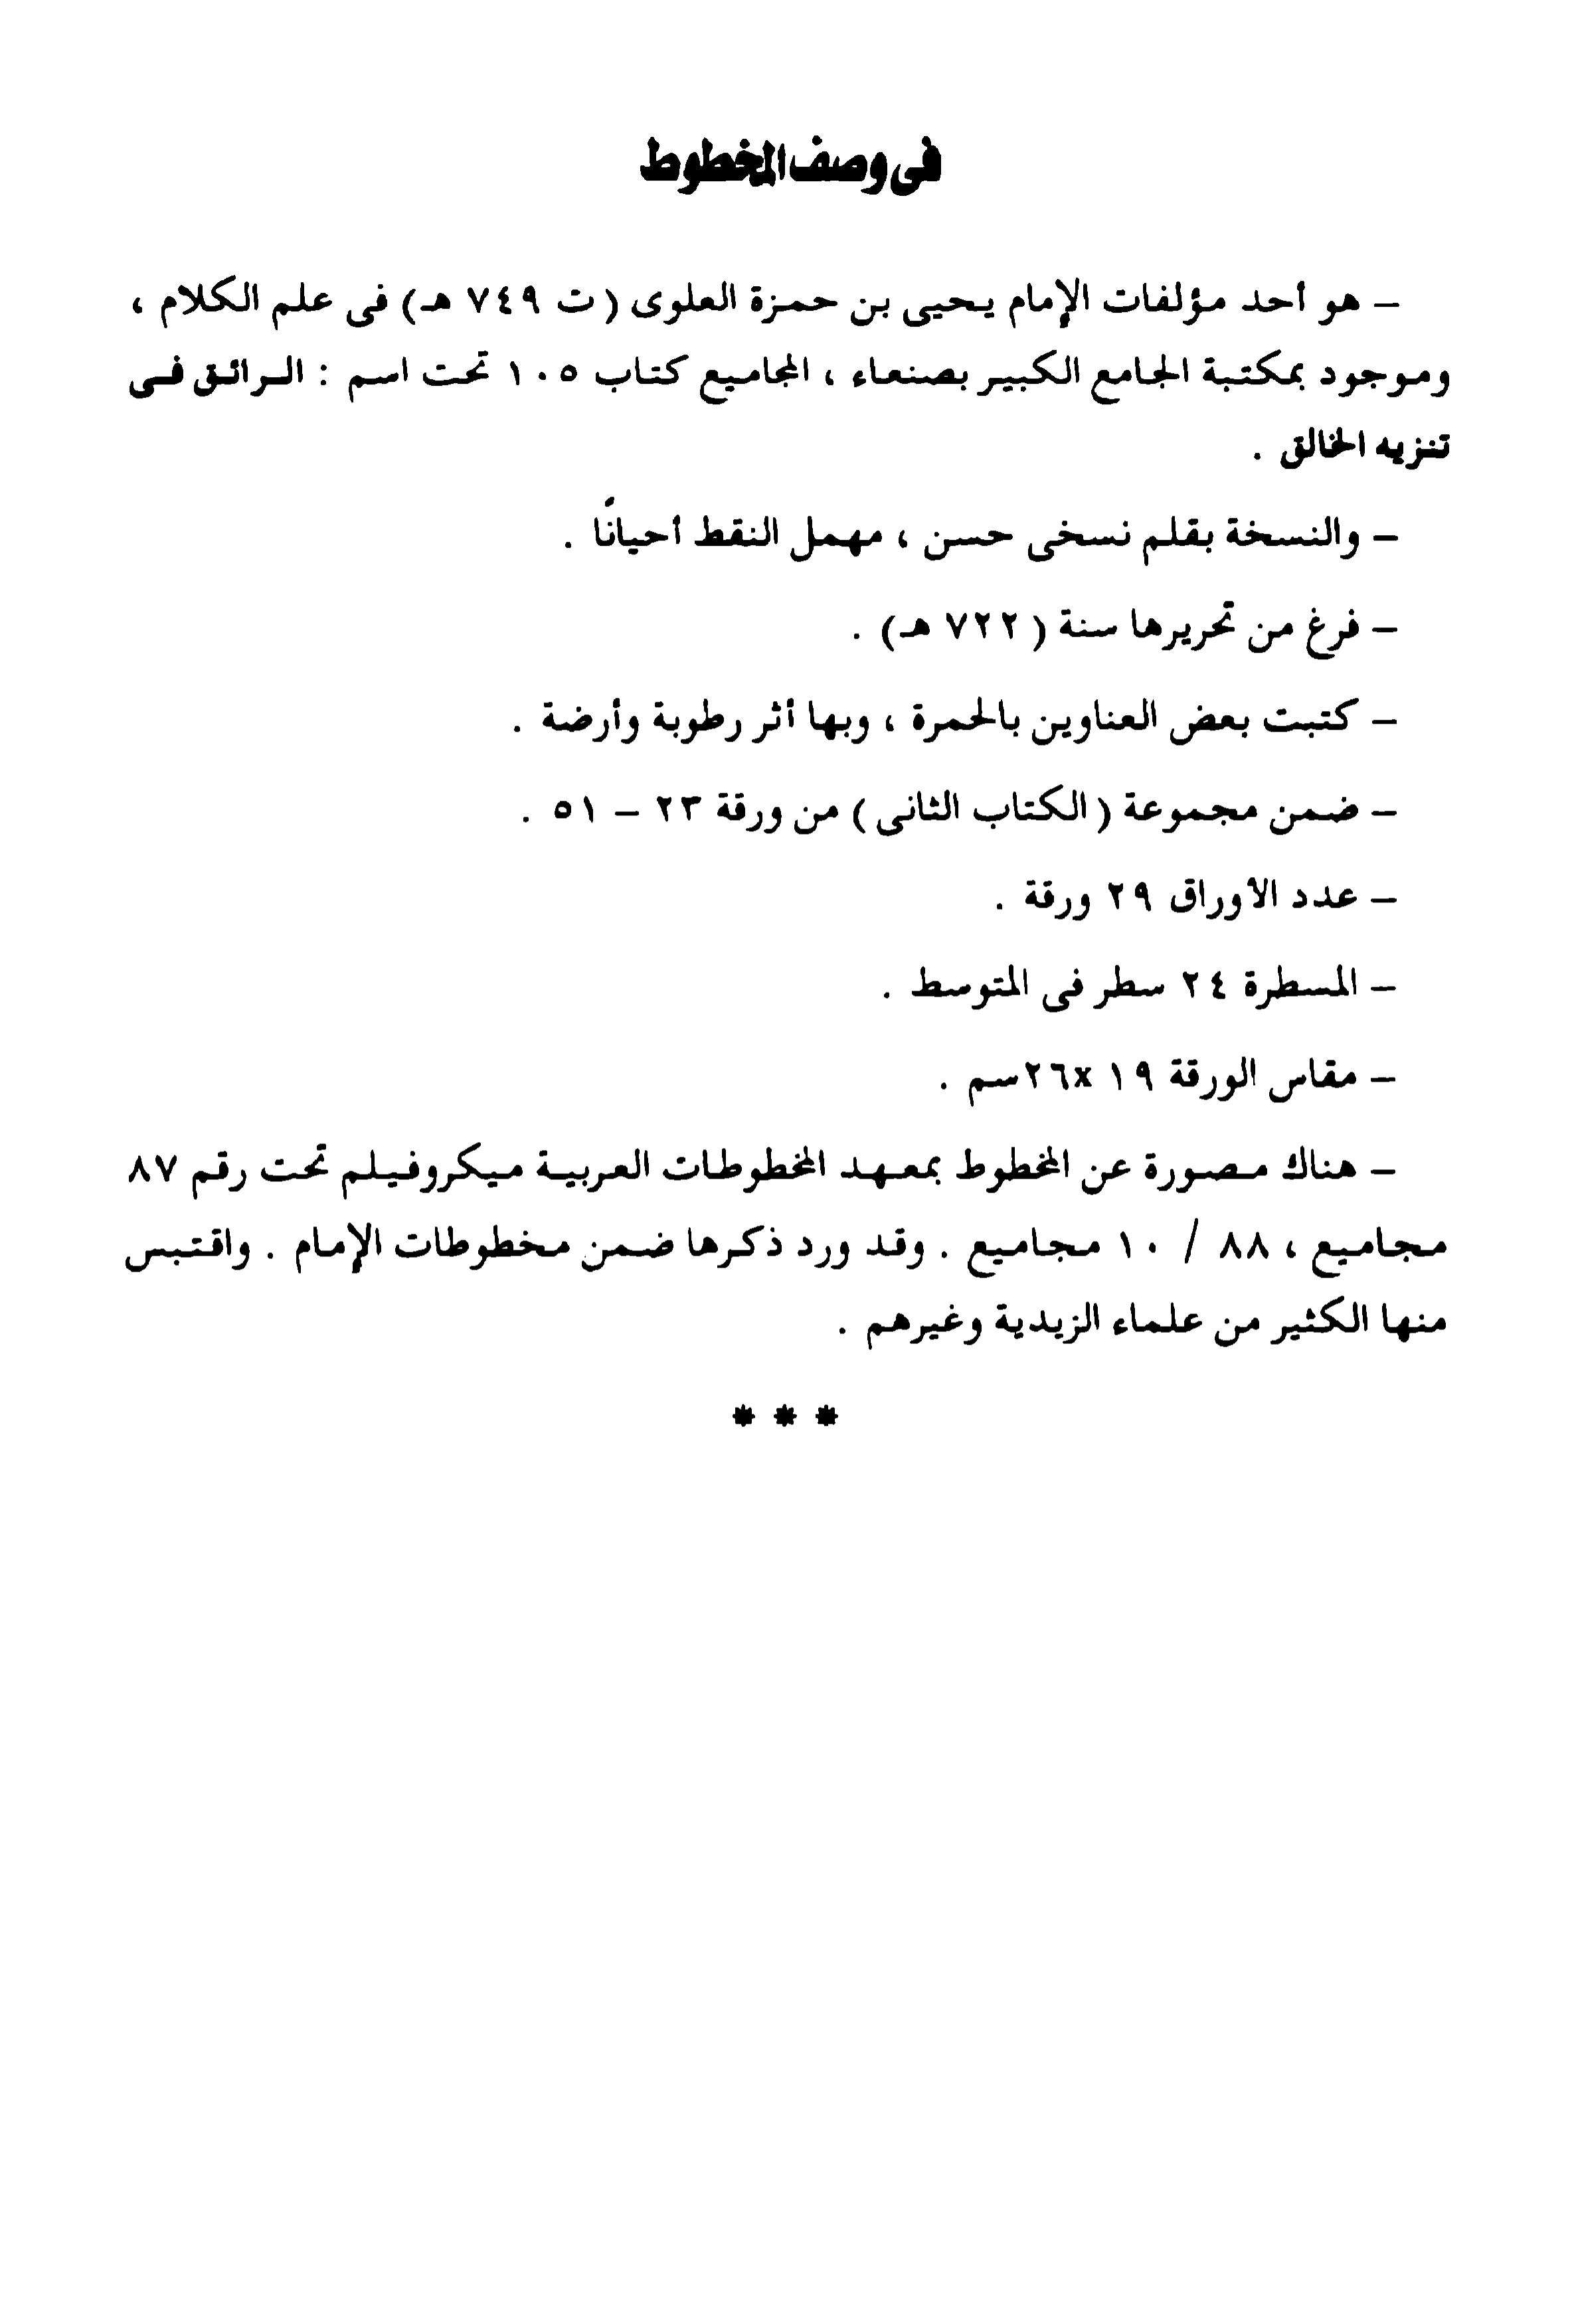 فى وصف المخطوط
– هو أحد مؤلفات الإمام يحيى بن حمزة العلوى ( ت ٧٤٩ هـ) فى علم الكلام ،
وموجود بمكتبة الجامع الكبير بصنعاء ، المجاميع كتاب ١٠٥ تحت اسم : الرائق فى
تنزيه الخالق .
– والنسخة بقلم نسخى حسن ، مهمل النقط أحيانًا .
– فرغ من تحريرها سنة ( ٧٢٢ هـ) .
– كتبت بعض العناوين بالحمرة ، وبها أثر رطوبة وأرضة .
– ضمن مجموعة ( الكتاب الثانى ) من ورقة ٢٣ – ٥١ .
– عدد الاوراق ٢٩ ورقة .
– المسطرة ٢٤ سطر فى المتوسط .
– مقاس الورقة ١٩ x٢٦سم .
– هناك مصورة عن المخطوط بمعهد المخطوطات العربية ميكروفيلم تحت رقم ٨٧
مجاميع ، ٨٨ / ١٠ مجاميع . وقد ورد ذكرها ضمن مخطوطات الإمام . واقتبس
منها الكثير من علماء الزيدية وغيرهم .
* * *